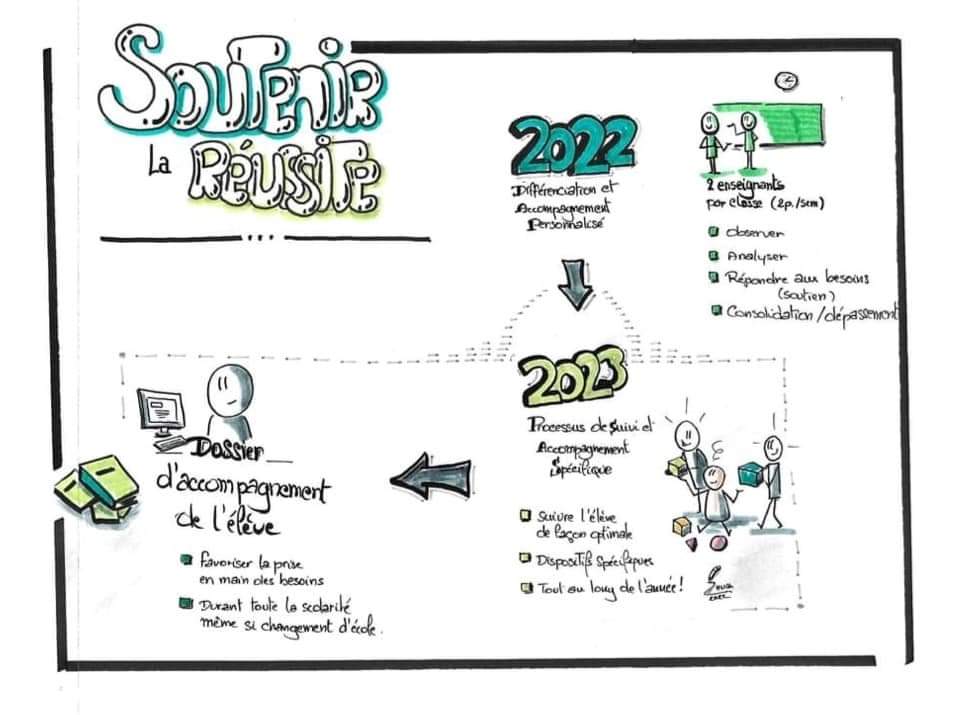 Soutenir
La Réussite
2022
Différenciation et
Accompagnement
Personnalisé
2 enseignants
par classe (2p./sem)
Observer
Analyser
Répondre aux besoins
(soutien)
Consolidation/dépassement
2023
Processus de Suivi et
Accompagnement
Spécifique
Suivre l'élève
de façon optimale
Dispositifs Spécifiques
Tout au long de l'année !
Dossier
d'accompagnement
de l'élève
Favoriser la prise
en main des besoins
Durant toute la scolarité
même si changement d'école.